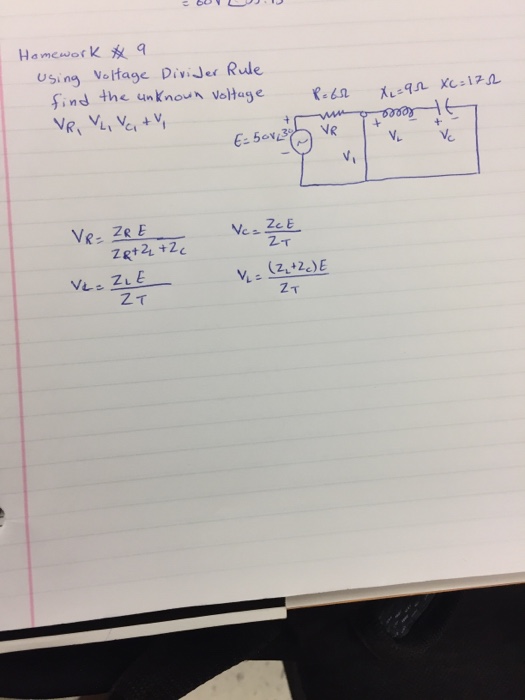 Homework # 9
Using Voltage Divider Rule
find the unknown voltage
VR, VL, VC, + V1
R=6Ω XL=9Ω XC=17Ω
E=50V∠30
+ - VR V1 + - VL + - VC
VR = ZR E / ZR+ZL+ZC
VC = ZC E / ZT
VL = ZL E / ZT
VL = (ZL+ZC)E / ZT